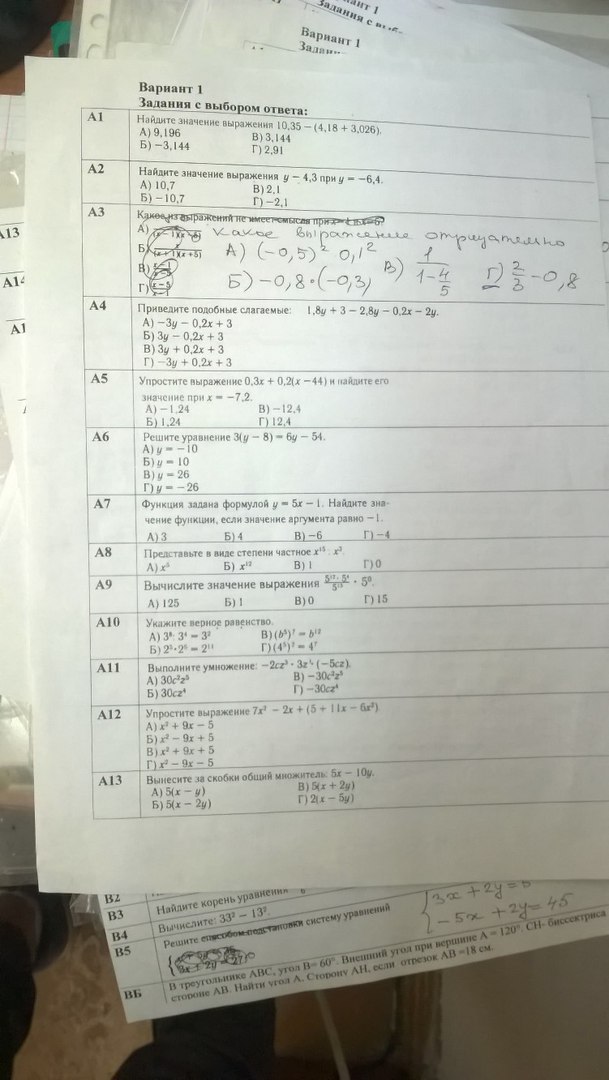 Вариант 1
Вариант 1
Вариант 1
Задания с выбором ответа:
А1
Найдите значение выражения 10,35 − (4,18 + 3,026).
А) 9,196 В) 3,144
Б) −3,144 Г) 2,91
А2
Найдите значение выражения y − 4,3 при y = −6,4.
А) 10,7 В) 2,1
Б) −10,7 Г) −2,1
А3
Какое из выражений не имеет смысла при
Какое выражение отрицательно
А) (−0,5)² 0,1²
Б) −0,8·(−0,3)
В) 1/(1−4/5)
Г) 2/3 −0,8
А4
Приведите подобные слагаемые: 1,8y + 3 − 2,8y − 0,2x − 2y.
А) −3y − 0,2x + 3
Б) 3y − 0,2x + 3
В) 3y + 0,2x + 3
Г) −3y + 0,2x + 3
А5
Упростите выражение 0,3x + 0,2(x − 44) и найдите его
значение при x = −7,2.
А) −1,24 В) −12,4
Б) 1,24 Г) 12,4
А6
Решите уравнение 3(y − 8) = 6y − 54.
А) y = −10
Б) y = 10
В) y = 26
Г) y = −26
А7
Функция задана формулой y = 5x − 1. Найдите зна-
чение функции, если значение аргумента равно −1.
А) 3 Б) 4 В) −6 Г) −4
А8
Представьте в виде степени частное x¹⁵ : x³.
А) x⁵ Б) x¹² В) 1 Г) 0
А9
Вычислите значение выражения · 5⁰.
А) 125 Б) 1 В) 0 Г) 15
А10
Укажите верное равенство.
А) 3⁸ : 3⁴ = 3² В) (b⁵)⁷ = b¹²
Г) (4⁵)² = 4⁷
А11
Выполните умножение: −2cz³ · · (−5cz).
А) 30c²z⁵ В) −30c²z⁵
Б) 30cz⁴ Г) −30cz⁴
А12
Упростите выражение 7x² − 2x + (5 + 11x − 6x²)
А) x² + 9x − 5
Б) x² − 9x + 5
В) x² + 9x + 5
Г) x² − 9x − 5
А13
Вынесите за скобки общий множитель: 5x − 10y.
А) 5(x − y) В) 5(x + 2y)
Б) 5(x − 2y) Г) 2(x − 5y)
В2
В3
Найдите корень уравнения
В4
Вычислите: 33² − 13².
В5
Решите способом подстановки систему уравнений
3x + 2y = 5
−5x + 2y = 45
ВБ
В треугольнике АВС, угол В= 60°. Внешний угол при вершине А = 120°. СН- биссектриса
стороне АВ. Найти угол А. Сторону АН, если отрезок АВ =18 см.